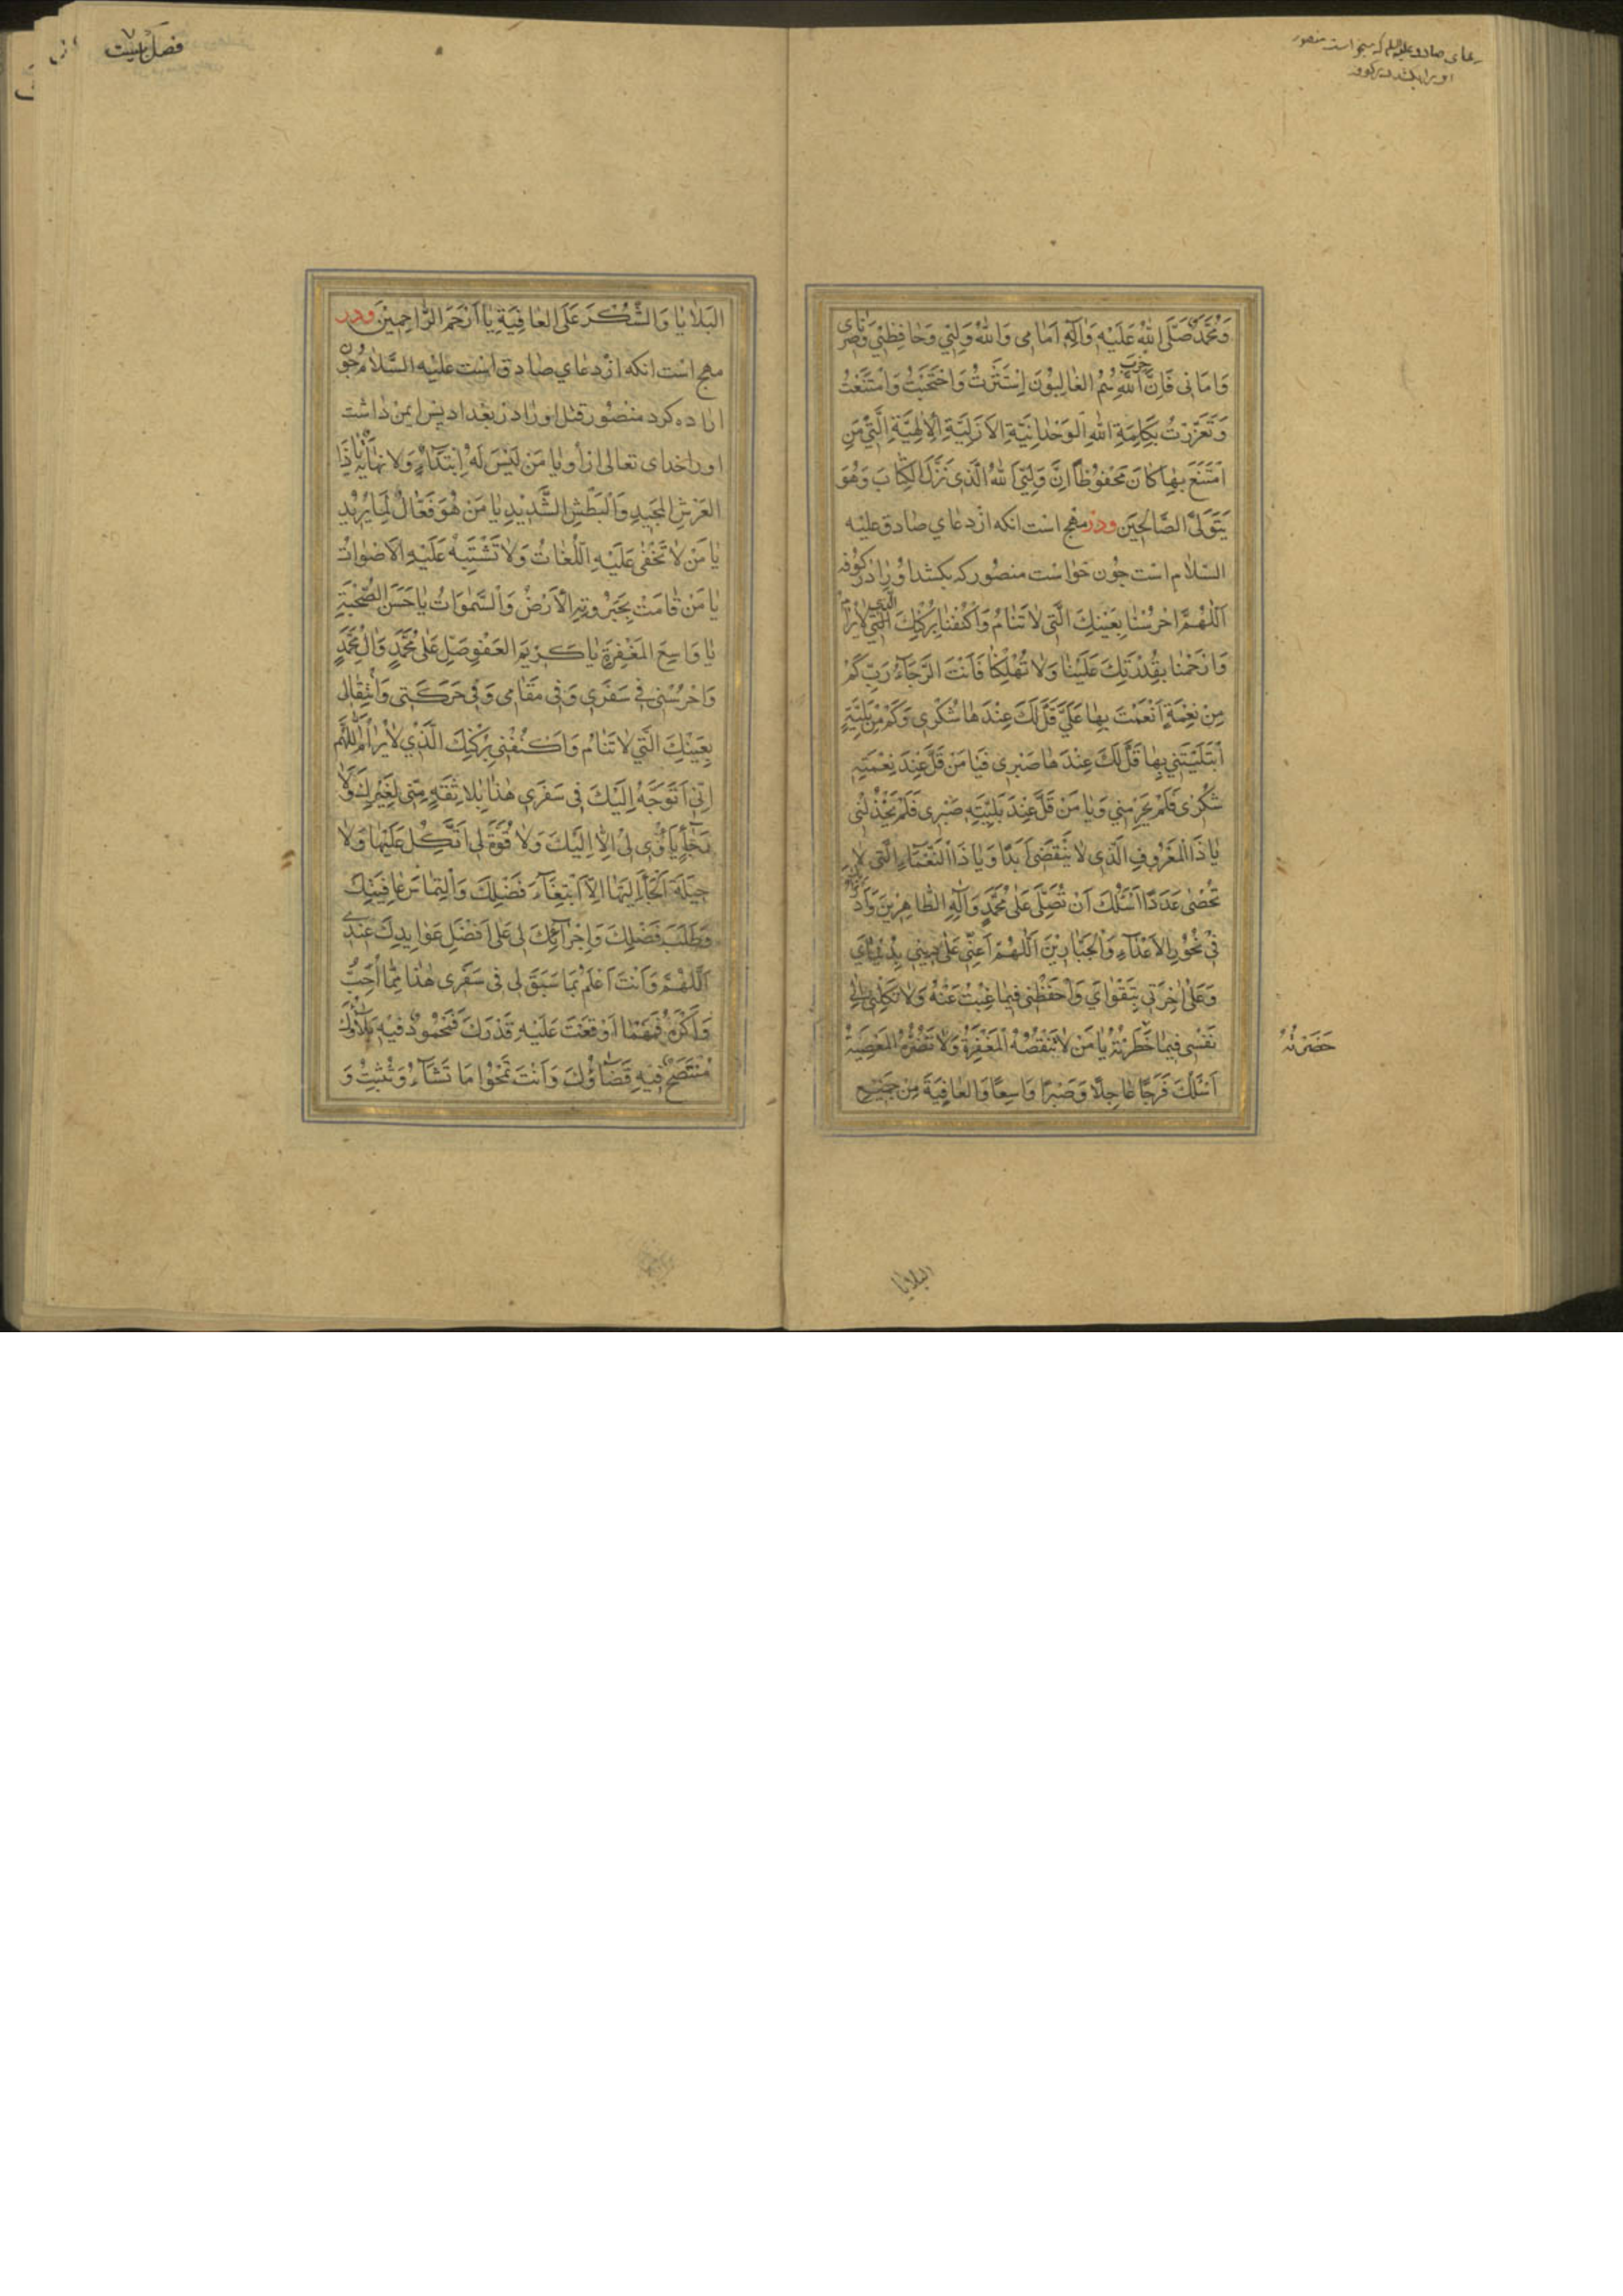 دعای صادق علیه السلم که میخواست منصور
او را بکشد در کوفه
وَمُحَمَّدٌ صَلَّى اللهُ عَلَيْهِ وَاٰلِهِ اَمَامِى وَاللهُ وَلِيّى وَحَافِظِى وَنَاصِرِى
وَاَمَانِى فَاِنَّ حِزْبَ اللهِ هُمُ الغَالِبُوْنَ اِسْتَتَرْتُ وَاحْتَجَبْتُ وَامْتَنَعْتُ
وَتَعَزَّزْتُ بِكَلِمَةِ اللهِ الوَحْدَانِيَّةِ الاَزَلِيَّةِ الاِلٰهِيَّةِ الَّتِى مَنِ
امْتَنَعَ بِهَا كَانَ مَحْفُوظًا اِنَّ وَلِيِّىَ اللهُ الَّذِى نَزَّلَ الكِتَابَ وَهُوَ
يَتَوَلَّى الصَّالِحِيْنَ ودر مهج است انکه از دعای صادق علیه
السّلام است چون خواست منصور که بکشد او را در کوفه
اَللّٰهُمَّ احْرُسْنَا بِعَيْنِكَ الَّتِى لَا تَنَامُ وَاكْنُفْنَا بِرُكْنِكَ الَّذِى لَا يُرَامُ
وَارْحَمْنَا بِقُدْرَتِكَ عَلَيْنَا وَلَا تُهْلِكْنَا فَاَنْتَ الرَّجَاءُ رَبِّ كَمْ
مِنْ نِعْمَةٍ اَنْعَمْتَ بِهَا عَلَىَّ قَلَّ لَكَ عِنْدَهَا شُكْرِى وَكَمْ مِنْ بَلِيَّةٍ
ابْتَلَيْتَنِى بِهَا قَلَّ لَكَ عِنْدَهَا صَبْرِى فَيَا مَنْ قَلَّ عِنْدَ نِعْمَتِهِ
شُكْرِى فَلَمْ يَحْرِمْنِى وَيَا مَنْ قَلَّ عِنْدَ بَلِيَّتِهِ صَبْرِى فَلَمْ يَخْذُلْنِى
يَا ذَا الْمَعْرُوفِ الَّذِى لَا يَنْقَضِى اَبَدًا وَيَا ذَا النَّعْمَاءِ الَّتِى لَا
تُحْصٰى عَدَدًا اَسْئَلُكَ اَنْ تُصَلِّىَ عَلٰى مُحَمَّدٍ وَاٰلِهِ الطَّاهِرِيْنَ وَاَدْرَأُ
فِى نُحُوْرِ الاَعْدَاءِ وَالْجَبَّارِيْنَ اَللّٰهُمَّ اَعِنِّى عَلٰى دِيْنِى بِدُنْيَاىَ
وَعَلٰى اٰخِرَتِى بِتَقْوَاىَ وَاحْفَظْنِى فِيمَا غِبْتُ عَنْهُ وَلَا تَكِلْنِى اِلٰى
نَفْسِى فِيمَا خَطَرْتُهُ يَا مَنْ لَا تَنْقُصُهُ الْمَغْفِرَةُ وَلَا تَضُرُّهُ الْمَعْصِيَةُ
حَضَرْتُهُ
اَسْئَلُكَ فَرَجًا عَاجِلًا وَصَبْرًا وَاسِعًا وَالعَافِيَةَ مِنْ جَمِيْعِ
البلايا
فصل بيست
البَلَايَا وَالشُّكْرَ عَلَى العَافِيَةِ يَا اَرْحَمَ الرَّاحِمِيْنَ ودر
مهج است انکه از دعای صادق است علیه السَّلام چون
اراده کرد منصور قتل او را در بغداد پس ایمن داشت
او را خدای تعالی از او يَا مَنْ لَيْسَ لَهُ اِبْتِدَاءٌ وَلَا نِهَايَةٌ يَا ذَا
العَرْشِ المَجِيدِ وَالْبَطْشِ الشَّدِيْدِ يَا مَنْ هُوَ فَعَّالٌ لِمَا يُرِيْدُ
يَا مَنْ لَا تَخْفٰى عَلَيْهِ اللُّغَاتُ وَلَا تَشْتَبِهُ عَلَيْهِ الْاَصْوَاتُ
يَا مَنْ قَامَتْ بِجَبَرُوتِهِ الْاَرْضُ وَالسَّمٰوَاتُ يَا حَسَنَ الصُّحْبَةِ
يَا وَاسِعَ المَغْفِرَةِ يَا كَرِيْمَ العَفْوِ صَلِّ عَلٰى مُحَمَّدٍ وَاٰلِ مُحَمَّدٍ
وَاحْرُسْنِى فِى سَفَرِى وَفِى مَقَامِى وَفِى حَرَكَتِى وَانْتِقَالِى
بِعَيْنِكَ الَّتِى لَا تَنَامُ وَاكْنُفْنِى بِرُكْنِكَ الَّذِى لَا يُرَامُ اَللّٰهُمَّ
اِنِّى اَتَوَجَّهُ اِلَيْكَ فِى سَفَرِى هٰذَا بِلَا ثِقَةٍ مِنِّى لِغَيْرِكَ وَلَا
رَجَاءٍ يَأْوِى بِى اِلَّا اِلَيْكَ وَلَا قُوَّةَ لِى اَتَّكِلُ عَلَيْهَا وَلَا
حِيْلَةَ اَلْجَأُ اِلَيْهَا اِلَّا ابْتِغَاءَ فَضْلِكَ وَالْتِمَاسَ عَافِيَتِكَ
وَطَلَبَ فَضْلِكَ وَاِجْرَائِكَ لِى عَلٰى اَفْضَلِ عَوَايِدِكَ عِنْدِى
اَللّٰهُمَّ وَاَنْتَ اَعْلَمُ بِمَا سَبَقَ لِى فِى سَفَرِى هٰذَا مِمَّا اُحِبُّ
وَاَكْرَهُ فَمَهْمَا اَوْقَعْتَ عَلَيْهِ قَدَرَكَ فَمَحْمُودٌ فِيْهِ بَلَاؤُكَ
مُنْتَصَحٌ فِيْهِ قَضَاؤُكَ وَاَنْتَ تَمْحُوا مَا تَشَاءُ وَتُثْبِتُ وَ